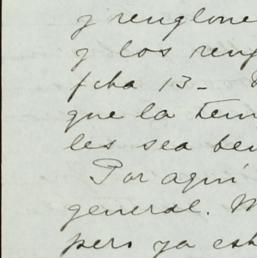 y renglone
y los reng
fcha 13_
que la tem
les sea ben
Por aquí
general. M
pero ya est